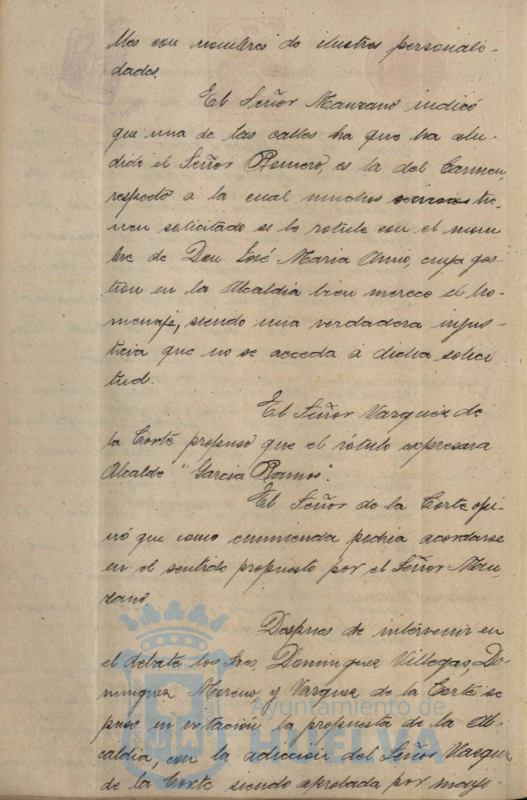 lles con nombres de ilustres personali-
dades.
El Señor Manzano indicó
que una de las calles ha que ha alu-
dido el Señor Romero, es la del Carmen,
respecto a la cual muchos vecinos tie-
nen solicitado se la rotule con el nom-
bre de Don José Maria Amo, cuya ges-
tion en la Alcaldia bien merece el ho-
menaje, siendo una verdadera injus-
ticia que no se acceda á dicha solici
tud.
El Señor Vazquez de
la Corte propuso que el rótulo expresara
Alcalde "Garcia Ramos".
El Señor de la Corte opi-
nó que como enmienda podria acordarse
en el sentido propuesto por el Señor Man-
zano.
Despues de intervenir en
el debate los Sres. Dominguez Villegas, Do-
minguez Moreno, y Vazquez de la Corte se
puso en votación la propuesta de la Al-
caldia, con la adicción del Señor Vazquez
de la Corte siendo aprobada por mayo-
Ayuntamiento de
HUELVA